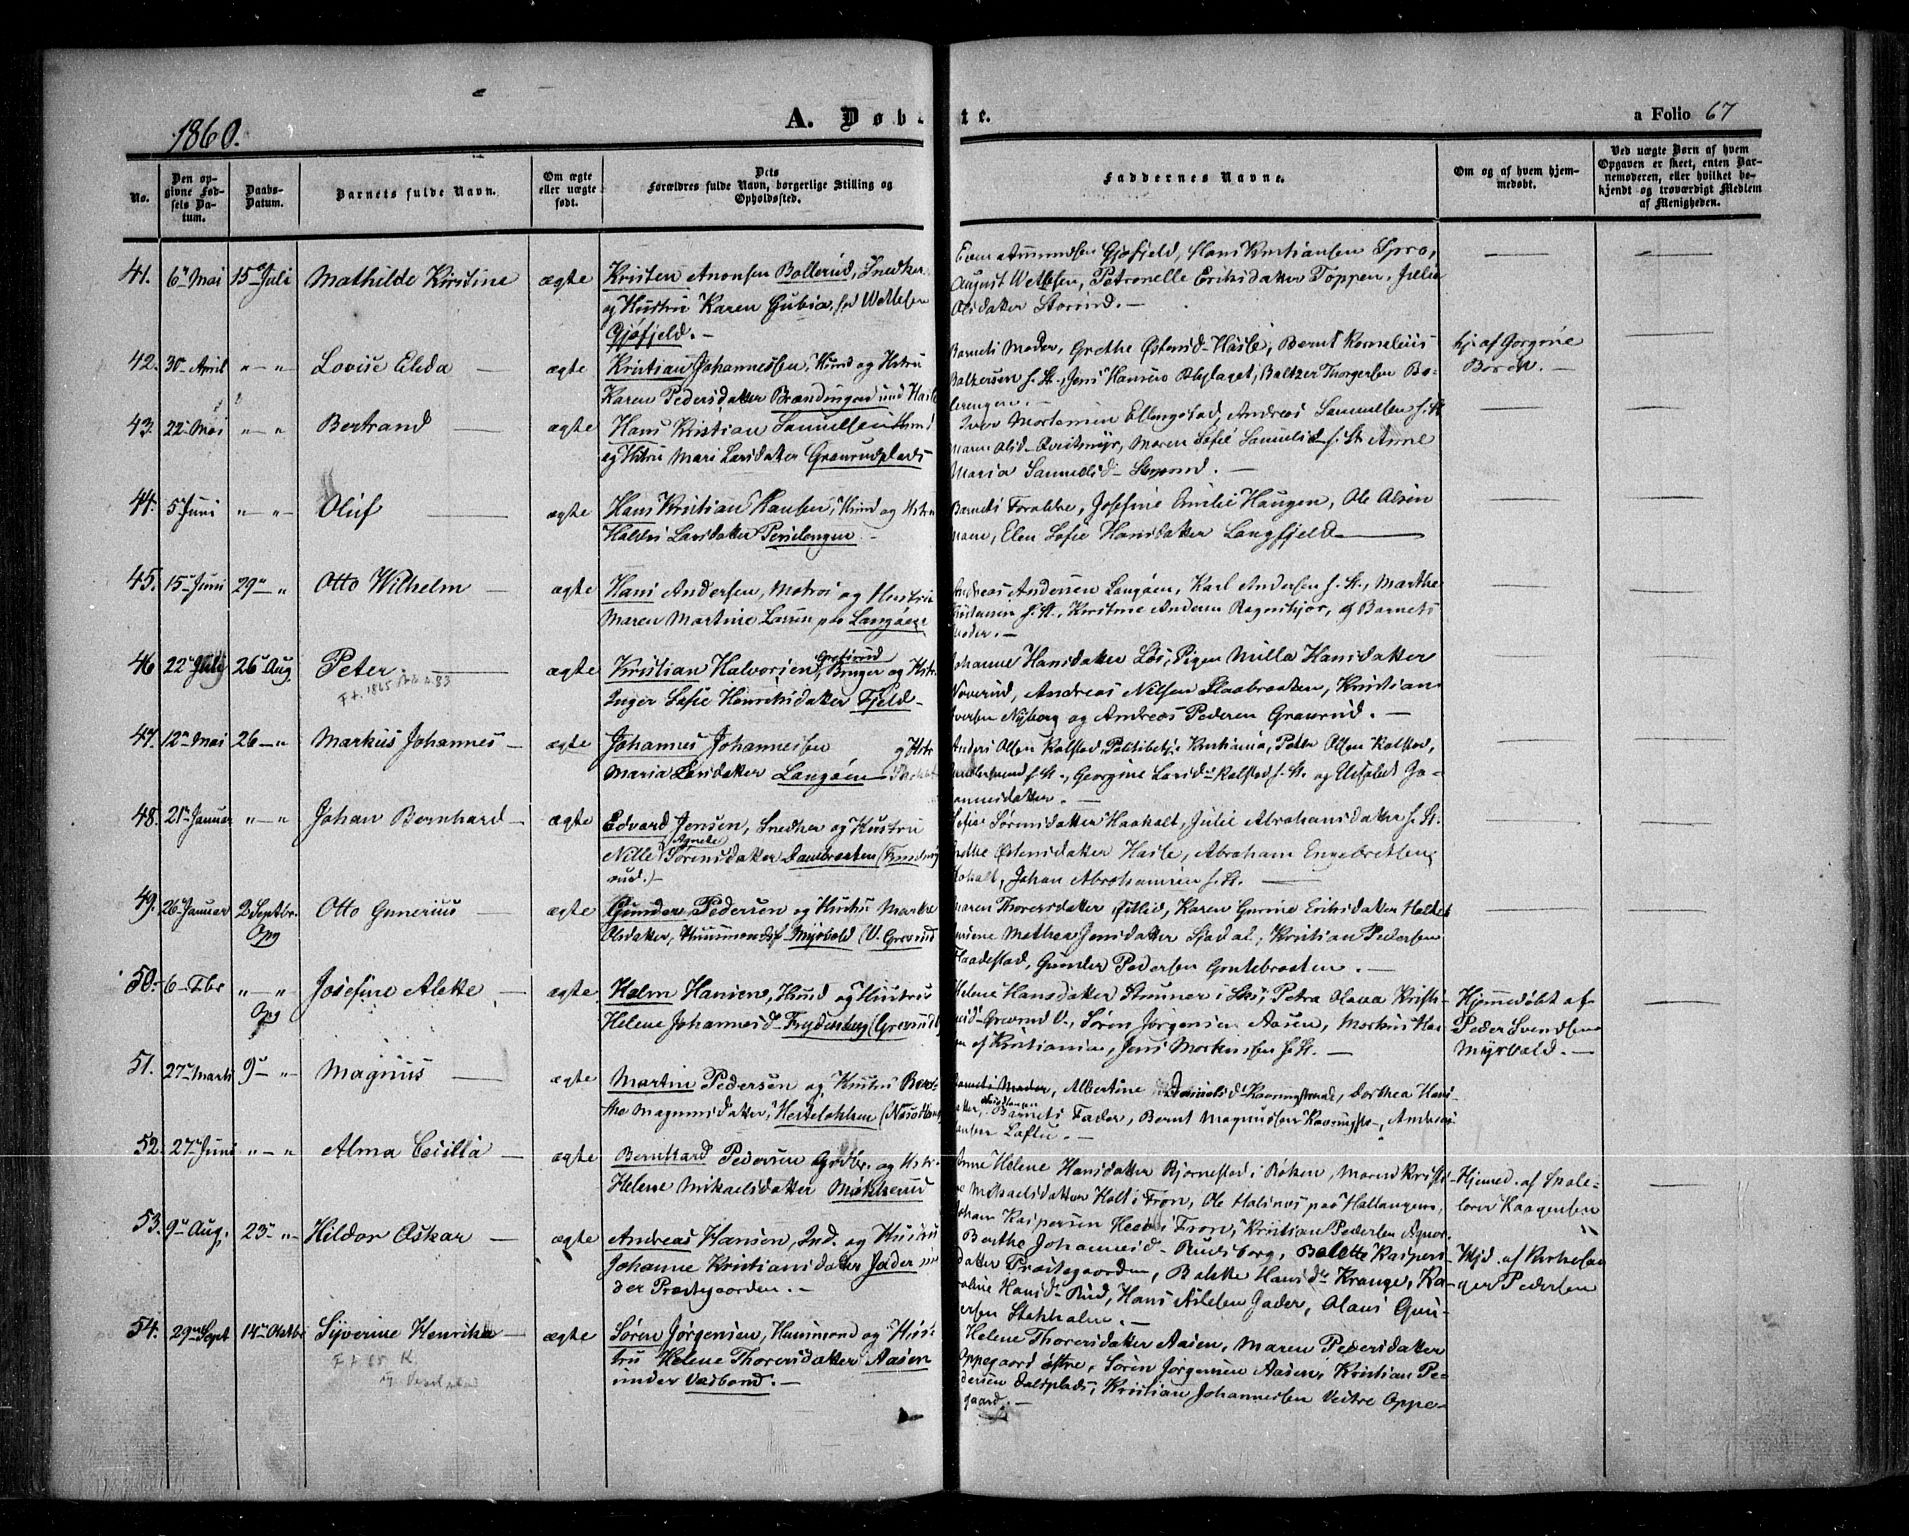 1860.
A. Døbte.
a Folio 67
No.
Den opgivne Fødsels Datum.
Daabs-Datum.
Barnets fulde Navn.
Om ægte eller uægte født.
Dets Forældres fulde Navn, borgerlige Stilling og Opholdssted.
Faddernes Navne.
Om og af hvem hjemmedøbt.
Ved uægte Børn af hvem Opgaven er skeet, enten Barnemoderen, eller hvilket bekjendt og troværdigt Medlem af Menigheden.
41. 6 Mai 15 Juli Mathilde Kristine ægte Kristen Anonsen Bollerud, Snedker
og Hustru Karen Gubia, fød Wetlesen
Gjøfjeld.-
Even Amundsen Gjøfjeld, Hans Kristiansen Spro,
August Wetlesen, Petronelle Eriksdatter Toppen, Julie
Olsdatter Storrud.-
42. 30 April " - " Lovise Elida ægte Kristian Johannessen, Hmd og Hstru
Karen Pedersdatter Brændingen und Hasle
Barnets Moder, Grethe Østensd Hasle, Bernt Kornelius
Baltzersen s. St., Jens Hansen, Baltzer Thorgersen Bo-
lerengen.-
hj. af Gorgine
43. 22 Mai " - " Bertrand ægte Hans Kristian Samuelsen Hmd
og Hstru Mari Larsdatter Graurudplads
Iver Mortensen Ellingstad, Andreas Samuelsen s. St.
Maren Olsd Kvistmyr, Maren Sofie Samuelsd s. St. Anne
Maria Samuelsd
44. 5 Juni " - " Oluf ægte Hans Kristian Hansen, Hmd og Hstru
Larsdatter
Barnets Forældre, Josefine Emilie Haugen, Ole Olsen
Elen Sofie Hansdatter Langfjeld
45. 15 Juni 29 " Otto Wilhelm ægte Hans Andersen, Matros og Hustru
Maren Martine Larsen paa Langøen
Andreas Andersen Langøen, Karl Andersen s. St., Marthe
s. St., Kristine Andersen, og Barnets
Moder.-
46 22 Juli 26 Aug Peter. ægte Kristian Halvorsen, Bruger og Hstr
Inger Sofie Henriksdatter Fjeld
F.t. 1865
Johanne Hansdatter Løs, Pigen Milla Hansdatter
Andreas Nilsen Slaabraaten, Kristian
Iversen Nyborg og Andreas Pedersen Graurud.-
47. 12 Mai 26 - " Markus Johannes ægte Johannes Johannesen og Hstr
Maria Larsdatter Langøen
Anders Olsen Kolstad, Politibetj: Kristiania, Petter Olsen Kolstad,
s. St., Georgine Larsd. Kolstad s. St. og Elisabet Jo-
hannesdatter.-
48. 21 Januar " - " Johan Bernhard ægte Edvard Jensen, Snedker og Hustru
Nille Agnete Sørensdatter Dambraaten
Sofie Sørensdatter Haahalt, Julie Abrahamsdatter s. St.
Grethe Østensdatter Hasle, Abraham Engebretsen
Hohalt, Johan Abrahamsen s. St.
49. 26 Januar 2 Septbr. Otto Gunerius ægte Gunder Pedersen og Hustru Marthe
Opg
Olsdatter, Huusmandsf Myrvold (V. Greverud
Maren Thoresdatter Østlid, Karen Gurine Eriksdatter
Mathea Jensdatter Sjødal, Kristian Pedersen
Haadestad, Gunder Pedersen Grutebraaten.-
50. 6 Fbr " - " Josefine Alette ægte Holm Hansen, Hmd og Hustru
Opg
Helene Johannesd Frydenberg (Greverud
Helene Hansdatter Strunner i Ski, Petra Olava Kristi-
Greverud V., Søren Jørgensen Aasen, Markus Han-
sen af Kristiania, Jens Mortensen s. St.-
Hjemmedøbt af
Peder Svendsen
Myrvold.-
51. 27 Marts 9 " Magnus ægte Martin Pedersen og Hustru Ber-
the Magnusdatter, Hestekokken
Barnets Moder, Albertine, Dorthea Hans-
datter, Barnets Fader, Bernt Magnudsen, Andreas
Hansen Loftu.-
52. 27 Juni " - " Alma Cecilia ægte Bernhard Pedersen Grdbr. og Hstr.
Helene Mikaelsdatter Myklerud
Anne Helene Hansdatter Bjørnestad i Røken, Maren Kristi-
ne Mikaelsdatter Holt i Frøn, Ole Halsnæs paa Hallangen,
Johan Kaspersen Heer i Frøn, Kristian Pedersen Agnor.
Hjemmed. af Skole-
lærer Kaagensen
53. 9 Aug. 23 " Hildor Oskar ægte Andreas Hansen, Ind. og Hustru
Johanne Kristiansdatter Jader un-
der Præstegaarden.-
Berthe Johannesd Rudsborg, Bolette Kaspers-
datter Præstegaarden, Bolette Hansd. Krange, Ka-
roline Hansd Rud, Hans Aslesen Jader, Olaus Gun-
dersen Stokholm.-
Hjd. af Kirkesan-
ger Pedersen
54. 29 Sept 14 Oktbr Syverine Henrikke ægte Søren Jørgensen, Huusmand og Hus-
tru Helene Thoresdatter Aasen
under Vædbond.-
F.t. 65
Helene Thoresdatter Aasen, Maren Pedersdatter
Oppegaard østre, Søren Jørgensen Aasen, Kristian Pe-
dersen Dalsplads, Kristian Johannessen Vestre Oppe-
gaard.-